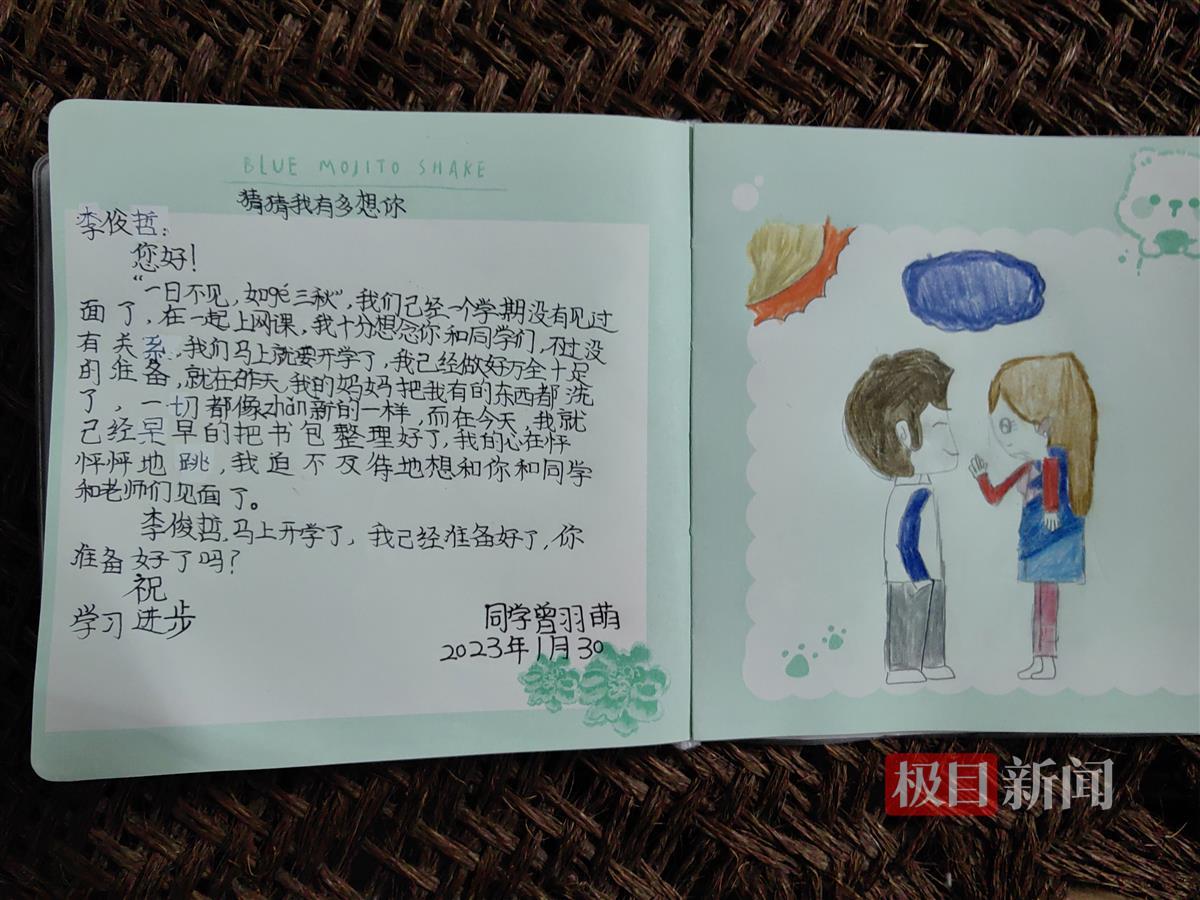 BLUE MOJITO SHAKE
猜猜我有多想你
李俊哲:
您好!
“一日不见,如gé三秋”,我们已经一个学期没有见过
面了,在一起上网课,我十分想念你和同学们,不过没
有关系,我们马上就要开学了,我已经做好万全十足
的准备,就在昨天,我的妈妈把我有的东西都洗
了,一切都像zhǎn新的一样,而在今天,我就
已经早早的把书包整理好了,我的心在怦
怦怦地跳,我迫不及待地想和你和同学
和老师们见面了。
李俊哲,马上开学了,我已经准备好了,你
准备好了吗?
祝
学习进步
同学曾羽萌
2023年1月30
极目新闻